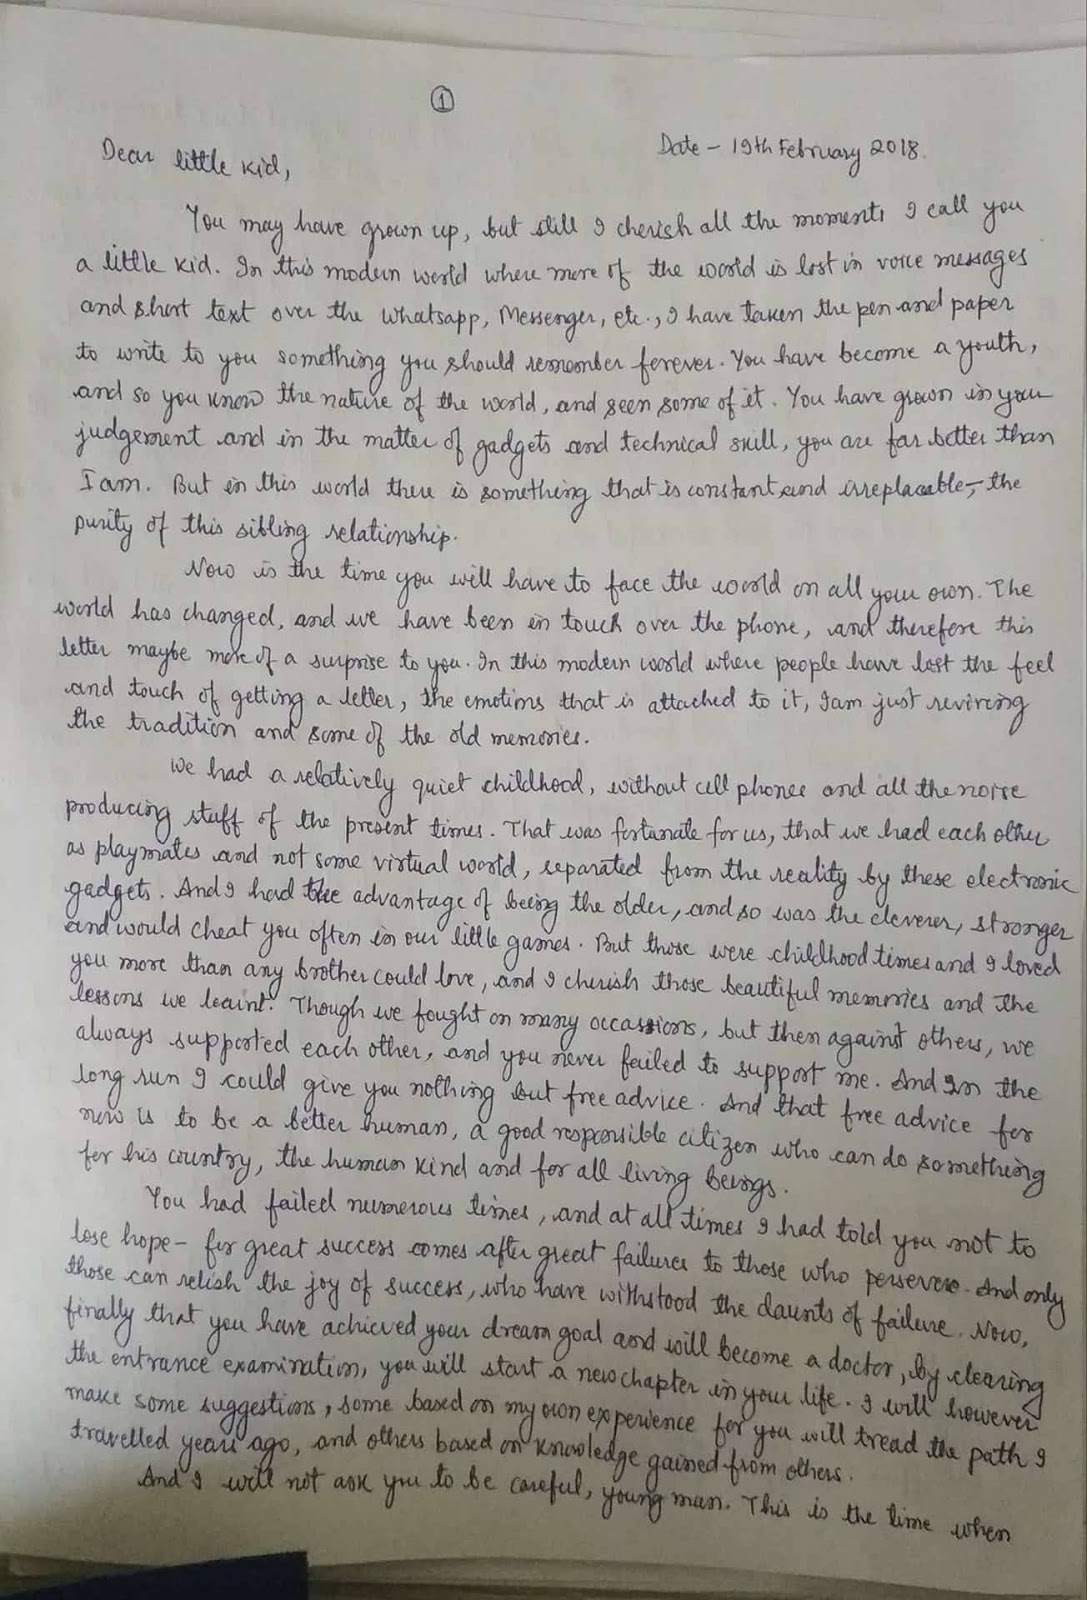 1
Dear little kid,
Date - 19th February 2018.
You may have grown up, but still I cherish all the moments I call you
a little kid. In this modern world where more of the world is lost in voice messages
and short text over the whatsapp, Messenger, etc., I have taken the pen and paper
to write to you something you should remember forever. You have become a youth,
and so you know the nature of the world, and seen some of it. You have grown in your
judgement and in the matter of gadgets and technical skill, you are far better than
I am. But in this world there is something that is constant and irreplacable - the
purity of this sibling relationship.
Now is the time you will have to face the world on all your own. The
world has changed, and we have been in touch over the phone, and therefore this
letter maybe more of a surprise to you. In this modern world where people have lost the feel
and touch of getting a letter, the emotions that is attached to it, I am just reviving
the tradition and some of the old memories.
We had a relatively quiet childhood, without cell phones and all the noise
producing stuff of the present times. That was fortunate for us, that we had each other
as playmates and not some virtual world, separated from the reality by these electronic
gadgets. And I had the advantage of being the older, and so was the cleverer, stronger
and would cheat you often in our little games. But those were childhood times and I loved
you more than any brother could love, and I cherish those beautiful memories and the
lessons we learnt. Though we fought on many occassions, but then against others, we
always supported each other, and you never failed to support me. And In the
long run I could give you nothing but free advice. And that free advice for
now is to be a better human, a good responsible citizen who can do something
for his country, the human kind and for all living beings.
You had failed numerous times, and at all times I had told you not to
lose hope - for great success comes after great failures to those who persevere. And only
those can relish the joy of success, who have withstood the daunts of failure. Now,
finally that you have achieved your dream goal and will become a doctor, by clearing
the entrance examination, you will start a new chapter in your life. I will however
make some suggestions, some based on my own experience for you will tread the path I
travelled years ago, and others based on knowledge gained from others.
And I will not ask you to be careful, young man. This is the time when